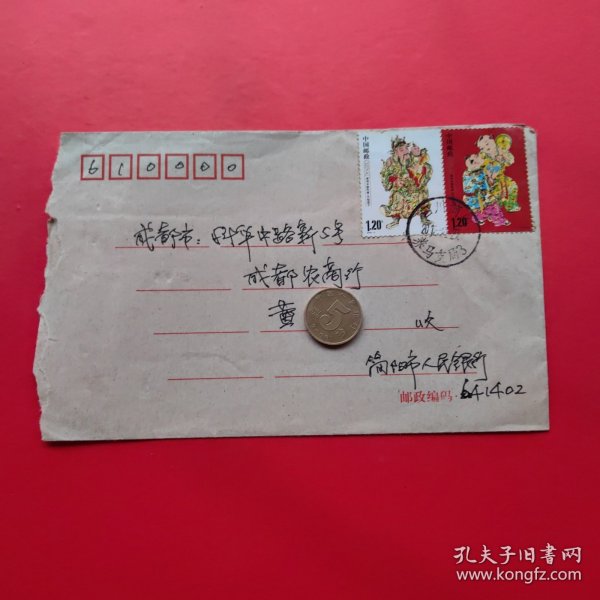 610000
中国邮政
1.20
中国邮政
1.20
成都市：科华中路新5号
成都农商行
黄
收
5
简阳市人民银行
邮政编码 641402
孔夫子旧书网
www.kongfz.com